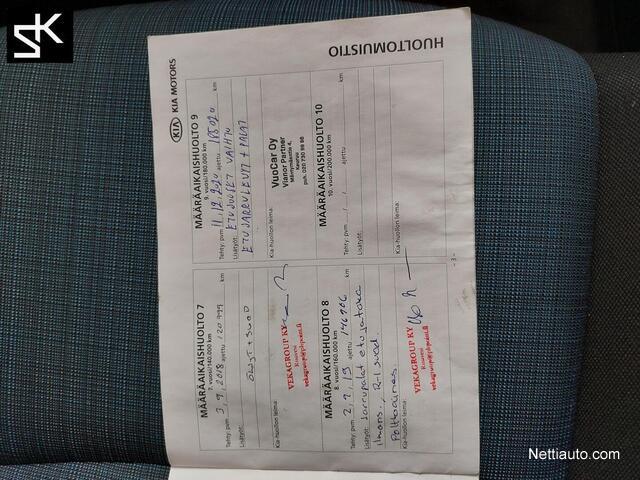 SK
HUOLTOMUISTIO
KIA KIA MOTORS
MÄÄRÄAIKAISHUOLTO 7
7. vuosi/140.000 km
Tehty: pvm 3, 9, 2018 ajettu 120 999 km
Lisätyöt:
ÖLJYT + SUOD
Kia-huollon leima:
VEKAGROUP KY
MÄÄRÄAIKAISHUOLTO 8
8. vuosi/160.000 km
Tehty: pvm 2, 9, 19 ajettu 146906 km
Lisätyöt: Jarrupalat etu ja taka
Kia-huollon leima:
VEKAGROUP KY
MÄÄRÄAIKAISHUOLTO 9
9. vuosi/180.000 km
Tehty: pvm 11, 12, 2020 ajettu km
Lisätyöt: ETUJOUSET VAIHTO
ETUJARRULEVYT + PALAT
Kia-huollon leima:
VuoCar Oy
Vianor Partner
MÄÄRÄAIKAISHUOLTO 10
10. vuosi/200.000 km
Tehty: pvm / / ajettu km
Lisätyöt:
Kia-huollon leima:
- 3 -
Nettiauto.com